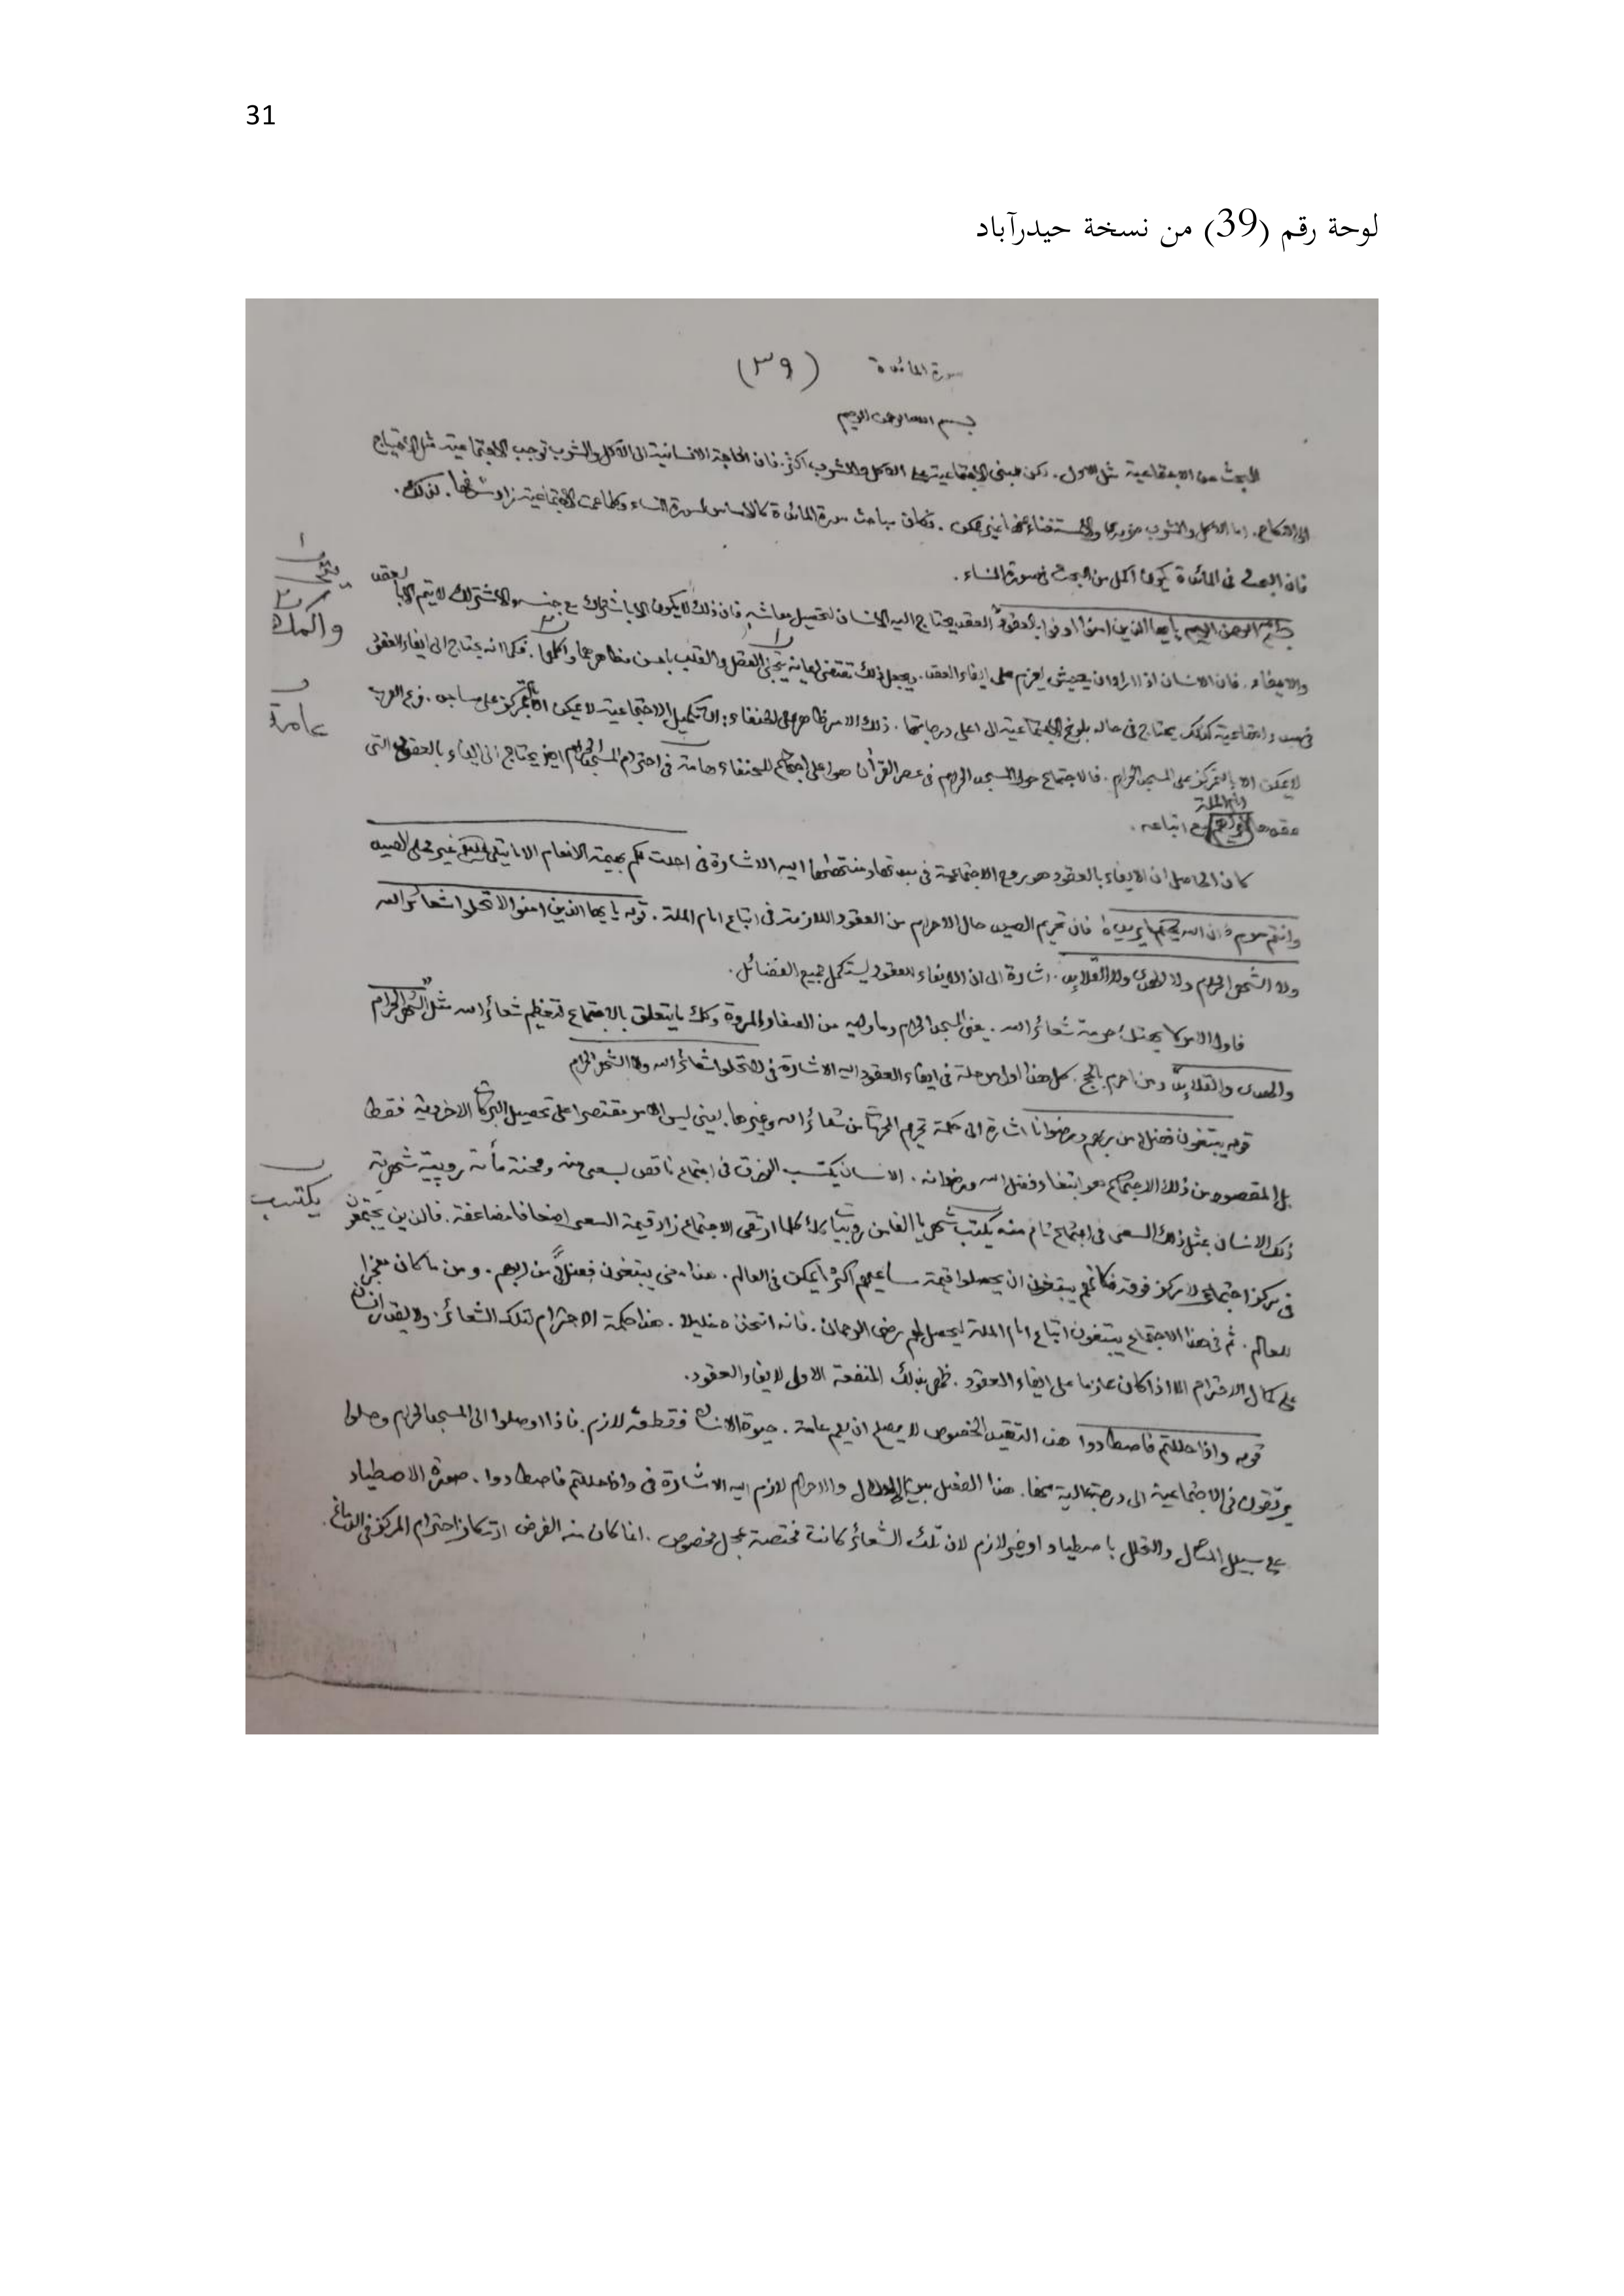 31
لوحة رقم (39) من نسخة حيدرآباد
سورة المائدة (٣٩)
بسم الله الرحمن الرحيم
البحث عن الاجتماعية مثل الاول. لكن مبنى الاجتماعية على الاكل والشرب اكثر. فان الحاجة الانسانية الى الاكل والشرب توجب الاجتماعية مثل الاحتياج
الى النكاح. اما الاكل والشرب والاستغناء عنهما غير ممكن. فكان مباحث سورة المائدة كالاساس لسورة النساء وكلما عمت الاجتماعية زاد شرفها. لذلك.
فان البحث فى المائدة يكون اكمل من البحث فى سورة النساء.
بسم الله الرحمن الرحيم يا يها الذين امنوا اوفوا بالعقود العقد يحتاج اليه الانسان لتحصيل معاشه فان ذلك لا يكون الا باشتراك مع جنسه والاشتراك لا يتم الا بالعقد
والايفاء. فان الانسان اذا اراد ان يعيش يعزم على ايفاء العقد. ويجعل ذلك تقتضى العقل والقلب باحسن مظاهرهما واكملها. فكما انه يحتاج الى ايفاء العقود
اجتماعية كذلك يحتاج فى حال بلوغ الاجتماعية الى اعلى درجاتها. ذلك الامر ظاهر على الحنفاء: ان تكميل الاجتماعية لا يمكن الا بالتمركز على مساجد. فى العرب
لا يمكن الا بالتمركز على المسجد الحرام. فالاجتماع حول المسجد الحرام فى عصر القرأن هو اعلى اجتماع للحنفاء عامة فى احترام المسجد الحرام ايضا يحتاج الى ايفاء بالعقود التى
امام الملة
عقدها ابراهيم مع اتباعه.
كان الحاصل ان الايفاء بالعقود هو روح الاجتماعية فى اليه الاشارة فى احلت لكم بهيمة الانعام الا ما يتلى عليكم غير محلى الصيد
وانتم حرم ان الله يحكم ما يريد فان تحريم الصيد حال الاحرام من العقود اللازمة فى اتباع امام الملة. قوله يا يها الذين امنوا لا تحلوا شعائر الله
ولا الشهر الحرام ولا الهدى ولا القلايد. اشارة الى ان الايفاء بالعقود يستكمل جميع الفضائل.
فاول الامر حرمة شعائر الله. يعنى المسجد الحرام وما يليه من الصفا والمروة وكل ما يتعلق بالاجتماع لتعظيم شعائر الله مثل الشهر الحرام
والهدى والقلايد ومن احرم بالحج. كل هذا اول مرحلة فى ايفاء العقود اليه الاشارة فى لا تحلوا شعائر الله ولا الشهر الحرام
قوله يبتغون فضلا من ربهم ورضوانا اشارة الى حكمة تحريم الحرمات من شعائر الله وغيرها. يعنى ليس الامر مقتصرا على تحصيل البركات الاخروية فقط
بل المقصود من ذلك الاجتماع هو ابتغاء فضل الله ورضوانه. الانسان يكتسب الرزق فى اجتماع ناقص بسعى منه ومحنة مأته روپية شهرية
ذلك الانسان بمثل ذلك السعى فى اجتماع تام منه يكتب شهريا الفا من روبيات كلما ارتقى الاجتماع زاد قيمة السعى اضعافا مضاعفة. فالذين يجتمعون
فى مركز اجتماعى لا مركز فوقه فكانهم يبتغون ان يحصلوا قيمة مساعيهم اكثر ما يمكن فى العالم. هذا معنى يبتغون فضلا من ربهم. ومن ما كان
للعالم. ثم فى هذا الاجتماع يبتغون اتباع امام الملة ليحصل لهم رضى الرحمان. فانه اتخذه خليلا. هذا حكمة الاحترام لتلك الشعائر. ولا يقدر انسان
على كمال الاحترام الا اذا كان عازما على ايفاء العقود. ظهر بذلك المنفعة الاولى لايفاء العقود.
قوله واذا حللتم فاصطادوا هذا التقيد الخصوص لا يصلح ان يعم عامة. حيوة الانسان فقطعه لازم. فاذا وصلوا الى المسجد الحرام وصلوا
يرتقون فى الاجتماعية الى درجة عالية هذا الفصل بين الاحلال والاحرام لازم اليه الاشارة فى واذا حللتم فاصطادوا. الاصطياد
على سبيل المثال والتحلل باصطياد لازم لان تلك الشعائر كانت مختصة بمحل مخصوص. انما كان منه الغرض ارتكاز احترام المركز فى
١
٢
واكملها
عامة
يكتسب